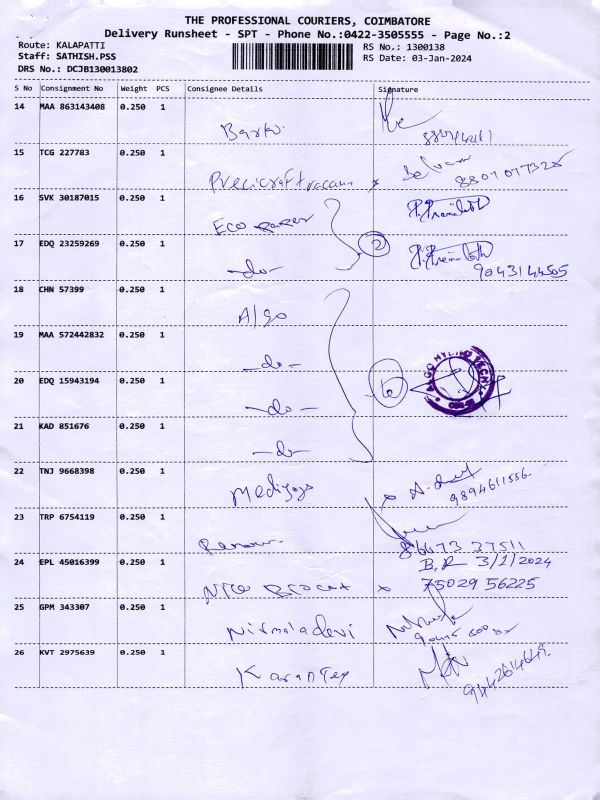 THE PROFESSIONAL COURIERS, COIMBATORE
Delivery Runsheet - SPT - Phone No.:0422-3505555 - Page No.:2
Route: KALAPATTI RS No,: 1300138
Staff: SATHISH.PSS RS Date: 03-Jan-2024
DRS No.: DCJB130013802
S No Consignment No Weight PCS Consignee Details Signature
14 MAA 863143408 0.250 1
15 TCG 227783 0.250 1
Precicraft
16 SVK 30187015 0.250 1
Eco
17 EDQ 23259269 0.250 1 2
-do- 9043144505
18 CHN 57399 0.250 1
Algo
19 MAA 572442832 0.250 1
-do-
20 EDQ 15943194 0.250 1
-do-
21 KAD 851676 0.250 1
-do-
22 TNJ 9668398 0.250 1
9894611556.
23 TRP 6754119 0.250 1
24 EPL 45016399 0.250 1 B.R 3/1/2024
75029 56225
25 GPM 343307 0.250 1
Nirmaladevi
26 KVT 2975639 0.250 1
Karan Tex